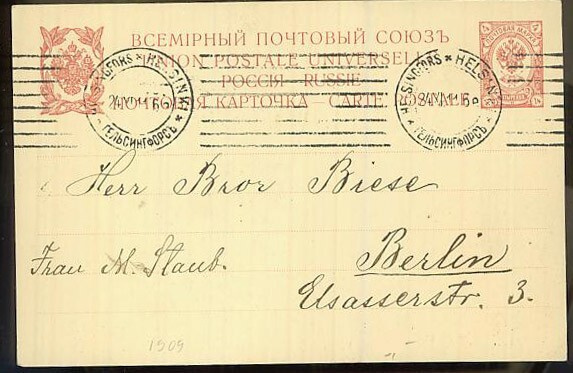 ВСЕМІРНЫЙ ПОЧТОВЫЙ СОЮЗЪ
UNION POSTALE UNIVERSELLE
РОССІЯ — RUSSIE
ПОЧТОВАЯ КАРТОЧКА — CARTE POSTALE
4 ПОЧТОВАЯ МАРКА 4
HELSINGFORS * HELSINKI
ГЕЛЬСИНГФОРСЪ
HELSINGFORS * HELSINKI
ГЕЛЬСИНГФОРСЪ
Herr Bror Biese
Frau M. Staub.
Berlin
Elsasserstr. 3.
1909